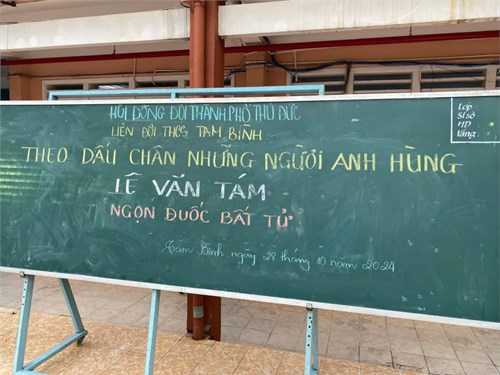 HỘI ĐỒNG ĐỘI THÀNH PHỐ THỦ ĐỨC
LIÊN ĐỘI THCS TAM BÌNH
THEO DẤU CHÂN NHỮNG NGƯỜI ANH HÙNG
LÊ VĂN TÁM
NGỌN ĐUỐC BẤT TỬ
Tam Bình, ngày 28 tháng 10 năm 2024
Lớp
Sĩ số
HD
Vắng